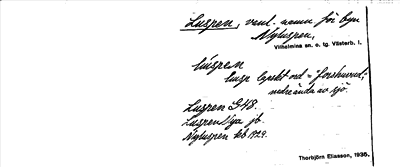 Lugren, vanl. namn för byn
Nylugren,
Vilhelmina sn. o. tg. Västerb. l.
lúgręn
lapskt ord = "forshuvud,"
nedre ända av sjö.
Lugren 948.
Lugren Nya jb.
Nylugren kb 1929.
Thorbjörn Eliasson, 1935.